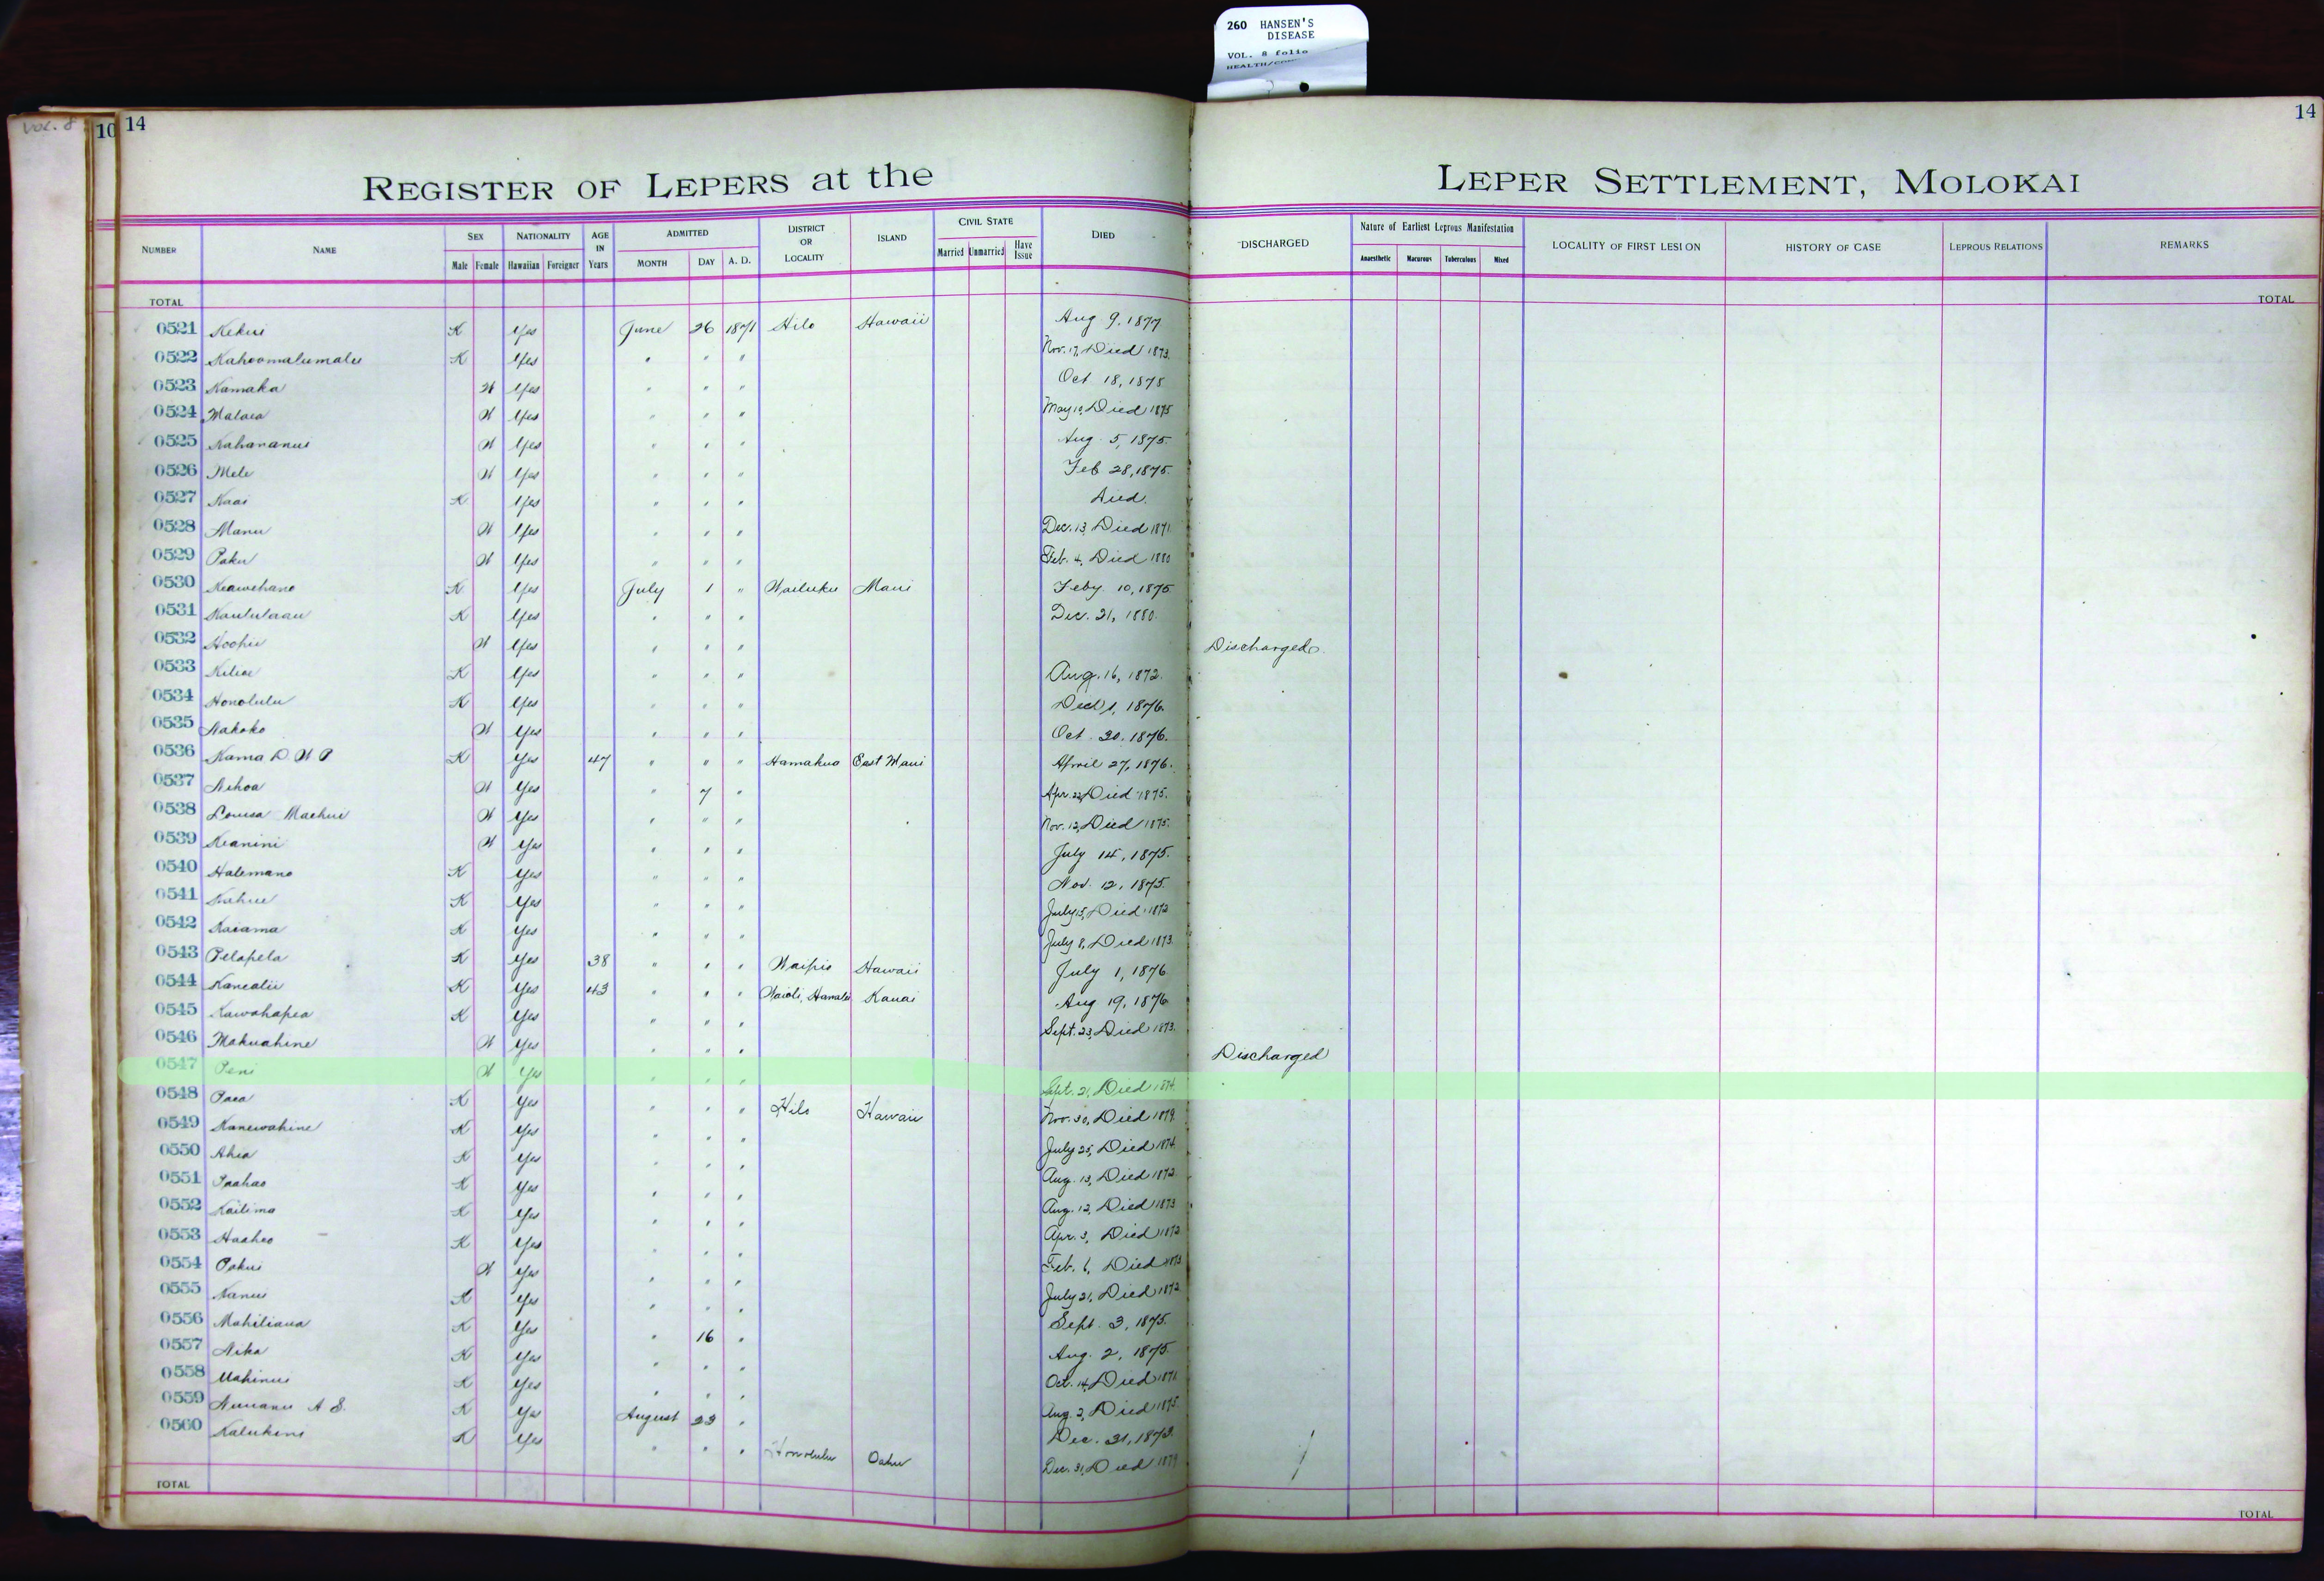 260 HANSEN'S
DISEASE
VOL. 8 folio
VOL. 8
10
14
14
REGISTER OF LEPERS at the LEPER SETTLEMENT, MOLOKAI
NUMBER NAME SEX Male Female NATIONALITY Hawaiian Foreigner AGE IN Years ADMITTED MONTH DAY A. D. DISTRICT OR LOCALITY ISLAND CIVIL STATE Married Unmarried Have Issue DIED DISCHARGED Nature of Earliest Leprous Manifestation Anaesthetic Macurous Tuberculous Mixed LOCALITY OF FIRST LESION HISTORY OF CASE LEPROUS RELATIONS REMARKS
TOTAL TOTAL
0521 Kekui K Yes June 26 1871 Hilo Hawaii Aug 9, 1877
0522 Kahoomalumalu K Yes " " " Nov. 17, Died 1873.
0523 Kamaka W Yes " " " Oct 18, 1875
0524 Malaea W Yes " " " May 10, Died 1875
0525 Kahananui W Yes " " " Aug. 5, 1875.
0526 Mele W Yes " " " Feb 28, 1875.
0527 Kaai K Yes " " " Died.
0528 Manu W Yes " " " Dec. 13, Died 1871
0529 Paku W Yes " " " Feb. 4, Died 1880
0530 Keawehano K Yes July 1 " Wailuku Maui Feby 10, 1875
0531 Kaululaau K Yes " " " Dec. 21, 1880.
0532 Hoohii W Yes " " " Discharged
0533 Kiliae K Yes " " " Aug. 16, 1872.
0534 Honolulu K Yes " " " 1, 1876.
0535 Nakoko W Yes " " " Oct. 20, 1876.
0536 Kama D. W P K Yes 47 " " " Hamakua East Maui April 27, 1876.
0537 Nihoa W Yes " 7 " Apr. 22, Died 1875.
0538 Louisa Maehui W Yes " " " Nov. 12, Died 1875.
0539 Keanini W Yes " " " July 14, 1875.
0540 Halemano K Yes " " " Nov. 12, 1875.
0541 Kahue K Yes " " " July 15, Died 1872
0542 Kaiama K Yes " " " July 8, Died 1873.
0543 Pelapela K Yes 38 " " " Waipio Hawaii July 1, 1876
0544 Kanealii K Yes 43 " " " Waioli, Hanalei Kauai Aug 19, 1876
0545 Kawahapea K Yes " " " Sept. 23, Died 1873.
0546 Makuahine W Yes " " " Discharged
0547 Peni W Yes " " " Sept. 21, Died 1874.
0548 Paea K Yes " " " Hilo Hawaii Nov. 30, Died 1879.
0549 Kanewahine K Yes " " " July 25, Died 1874.
0550 Ahia K Yes " " " Aug. 13, Died 1872.
0551 Paahao K Yes " " " Aug. 12, Died 1873
0552 Kailima K Yes " " " Apr. 3, Died 1872
0553 Haaheo K Yes " " " Feb. 6, Died 1873
0554 Pakui W Yes " " " July 21, Died 1872
0555 Nanui K Yes " " " Sept. 3, 1875.
0556 Mahiliaua K Yes " 16 " Aug. 2, 1875.
0557 Nika K Yes " " " Oct. 14, Died 1871
0558 Mahinui K Yes " " " Aug. 2, Died 1875.
0559 Nuuanu A S. K Yes August 23 " Dec. 31, 1873.
0560 Kalukini K Yes " " " Honolulu Oahu Dec. 31, Died 1879
TOTAL TOTAL